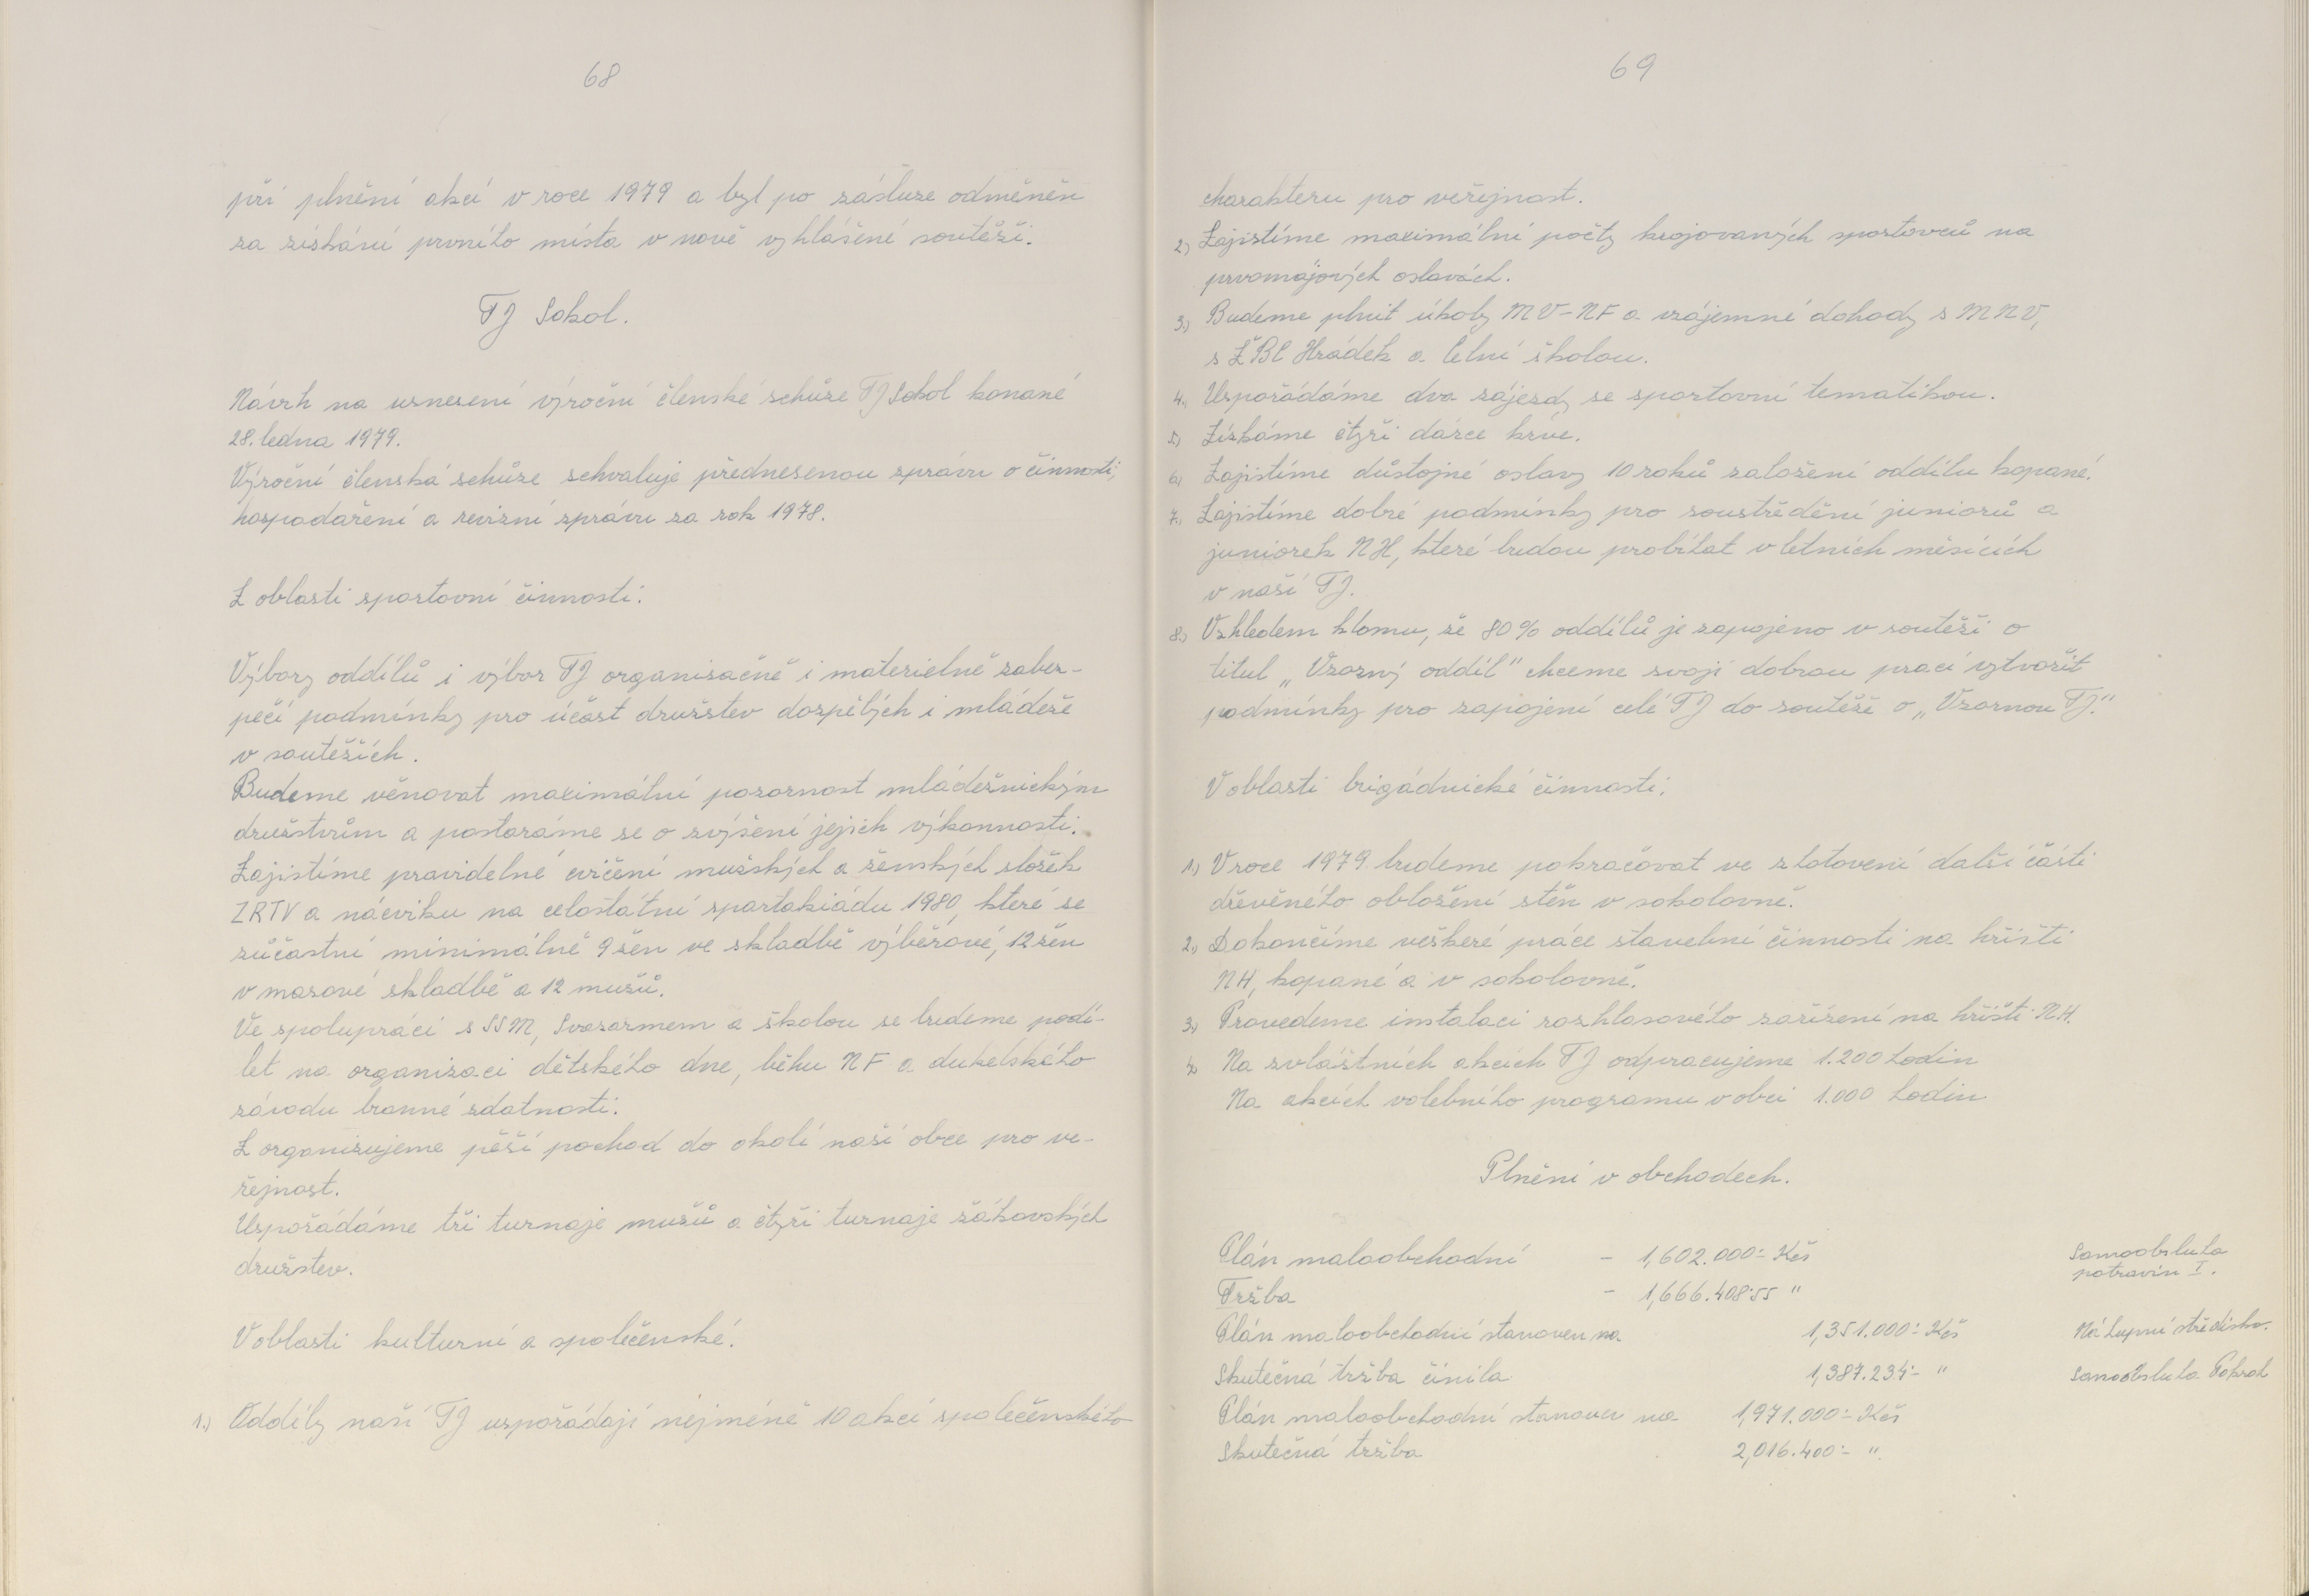 68
při plnění akcí v roce 1979 a byl po zásluze odměněn
za získání prvního místa v nově vyhlášené soutěži.
TJ Sokol.
Návrh na usnesení výroční členské schůze TJ Sokol konané
28. ledna 1979.
Výroční členská schůze schvaluje přednesenou zprávu o činnosti,
hospodaření a revizní zprávu za rok 1978.
Z oblasti sportovní činnosti:
Výbory oddílů i výbor TJ organisačně i materielně zabez-
pečí podmínky pro účast družstev dospělých i mládeže
v soutěžích.
Budeme věnovat maximální pozornost mládežnickým
družstvům a postaráme se o zvýšení jejich výkonnosti.
Zajistíme pravidelné cvičení mužských a ženských složek
ZRTV a nácviku na celostátní spartakiádu 1980, které se
zúčastní minimálně 9 žen ve skladbě výběrové, 12 žen
v masové skladbě a 12 mužů.
Ve spolupráci s SSM, Svazarmem a školou se budeme podí-
let na organizaci dětského dne, běhu NF a dukelského
závodu branné zdatnosti.
Z organizujeme pěší pochod do okolí naší obce pro ve-
řejnost.
Uspořádáme tři turnaje mužů a čtyři turnaje žákovských
družstev.
V oblasti kulturní a společenské.
1.) Oddíly naší TJ uspořádají nejméně 10 akcí společenského
69
charakteru pro veřejnost.
2.) Zajistíme maximální počty krojovaných sportovců na
prvomájových oslavách.
3.) Budeme plnit úkoly MV-NF a vzájemné dohody s MNV,
s ZBČ Hrádek a Celní školou.
4.) Uspořádáme dva zájezdy se sportovní tematikou.
5.) Získáme čtyři dárce krve.
6.) Zajistíme důstojné oslavy 10 roků založení oddílu kopané.
7.) Zajistíme dobré podmínky pro soustředění juniorů a
juniorek NH, které budou probíhat v letních měsících
v naší TJ.
8.) Vzhledem ktomu, že 80% oddílů je zapojeno v soutěži o
titul „Vzorný oddíl" chceme svojí dobrou prací vytvořit
podmínky pro zapojení celé TJ do soutěže o „Vzornou TJ."
V oblasti brigádnické činnosti:
1.) V roce 1979 budeme pokračovat ve zhotovení další části
dřevěného obložení stěn v sokolovně.
2.) Dokončíme veškeré práce stavební činnosti na hřišti
NH, kopané a v sokolovně.
3.) Provedeme instalaci rozhlasového zařízení na hřišti NH.
4.) Na zvláštních akcích TJ odpracujeme 1.200 hodin
Na akcích volebního programu v obci 1.000 hodin
Plnění v obchodech.
Plán maloobchodní - 1,602.000:- Kčs Samoobsluha
potravin I.
Tržba - 1,666.408:55 "
Plán maloobchodní stanoven na 1,351.000:- Kčs Nákupní středisko.
Skutečná tržba činila 1,387.234:- " Samoobsluha Pokrok
Plán maloobchodní stanoven na 1,971.000:- Kčs
Skutečná tržba 2,016.400:- "